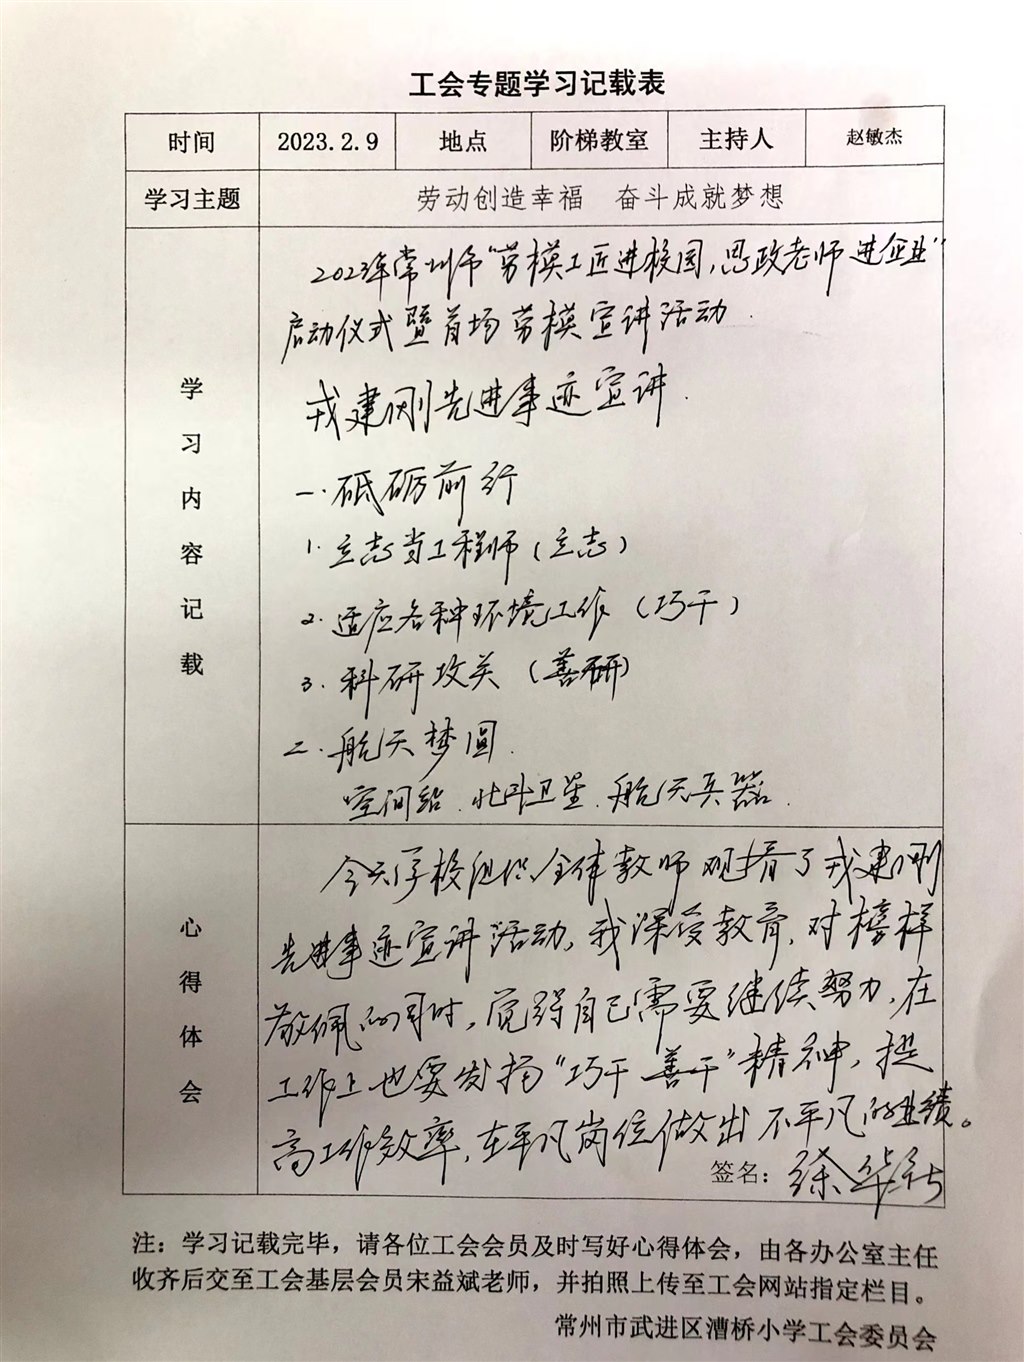 工会专题学习记载表
时间 2023.2.9 地点 阶梯教室 主持人 赵敏杰
学习主题 劳动创造幸福 奋斗成就梦想
学习内容记载
2023年常州市“劳模工匠进校园,思政老师进企业”
启动仪式暨首场劳模宣讲活动.
戎建刚先进事迹宣讲.
一.砥砺前行
1.立志当工程师(立志)
2.适应各种环境工作(巧干)
3.科研攻关(善研)
二.航天梦圆.
空间站.北斗卫星.航天兵器.
心得体会
今天学校组织全体教师观看了戎建刚
先进事迹宣讲活动,我深受教育,对榜样
敬佩的同时,觉得自己需要继续努力,在
工作上也要发扬“巧干善干”精神,提
高工作效率,在平凡岗位做出不平凡的业绩。
签名:徐华
注：学习记载完毕，请各位工会会员及时写好心得体会，由各办公室主任
收齐后交至工会基层会员宋益斌老师，并拍照上传至工会网站指定栏目。
常州市武进区漕桥小学工会委员会